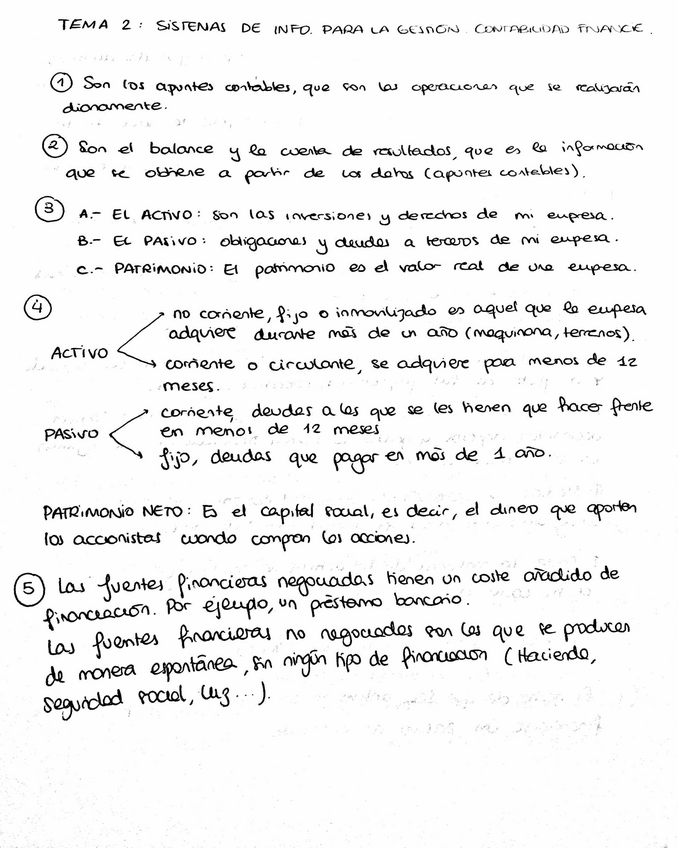 TEMA 2: SISTENAS DE INFO. PARA LA GESTIÓN. CONTABILIDAD FNANCIE.
① Son los apuntes contables, que son las operaciones que se realizarán
diariamente.
② Son el balance y la cuenta de resultados, que es la información
que se obtiene a partir de los datos (apuntes contables).
③ A.- EL ACTIVO: son las inversiones y derechos de mi empresa.
B.- EL PASIVO: obligaciones y deudas a terceros de mi empesa.
C.- PATRIMONIO: El patrimonio es el valor real de una empesa.
④
no corriente, fijo o inmovilizado es aquel que la empesa
adquiere durante más de un año (maquinaria, terrenos).
ACTIVO
corriente o circulante, se adquiere para menos de 12
meses.
corriente, deudas a las que se les tienen que hacer frente
en menos de 12 meses
PASIVO
fijo, deudas que pagar en más de 1 año.
PATRIMONIO NETO: Es el capital social, es decir, el dinero que aportan
los accionistas cuando compran las acciones.
⑤ Las fuentes financieras negociadas tienen un coste añadido de
financiación. Por ejemplo, un préstamo bancario.
Las fuentes financieras no negociadas son las que se producen
de manera espontánea, sin ningún tipo de financiación (Hacienda,
seguridad social, luz...).